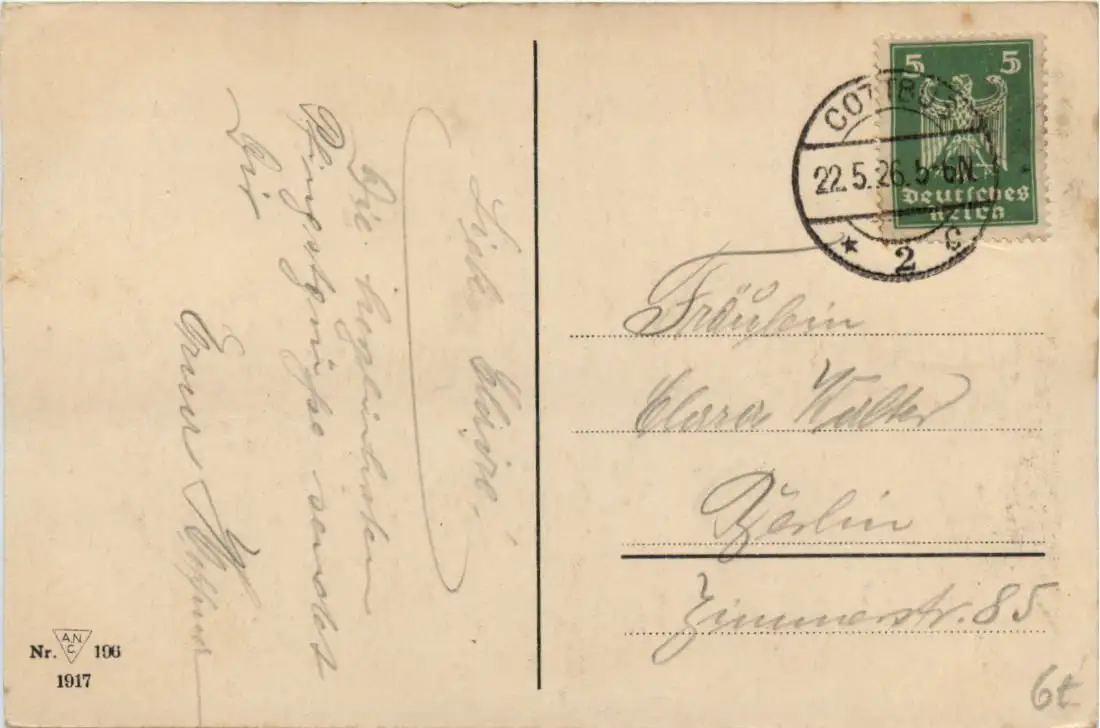 Liebe Claire!
Die herzlichsten
Pfingstgrüße sendet
Dir
5 5
Deutsches
Reich
COTTBUS
22.5.26. 5-6N.
* 2 c
Fräulein
Clara Walter
Berlin
Zimmerstr. 85
Nr. A.N.C. 196
1917
6t